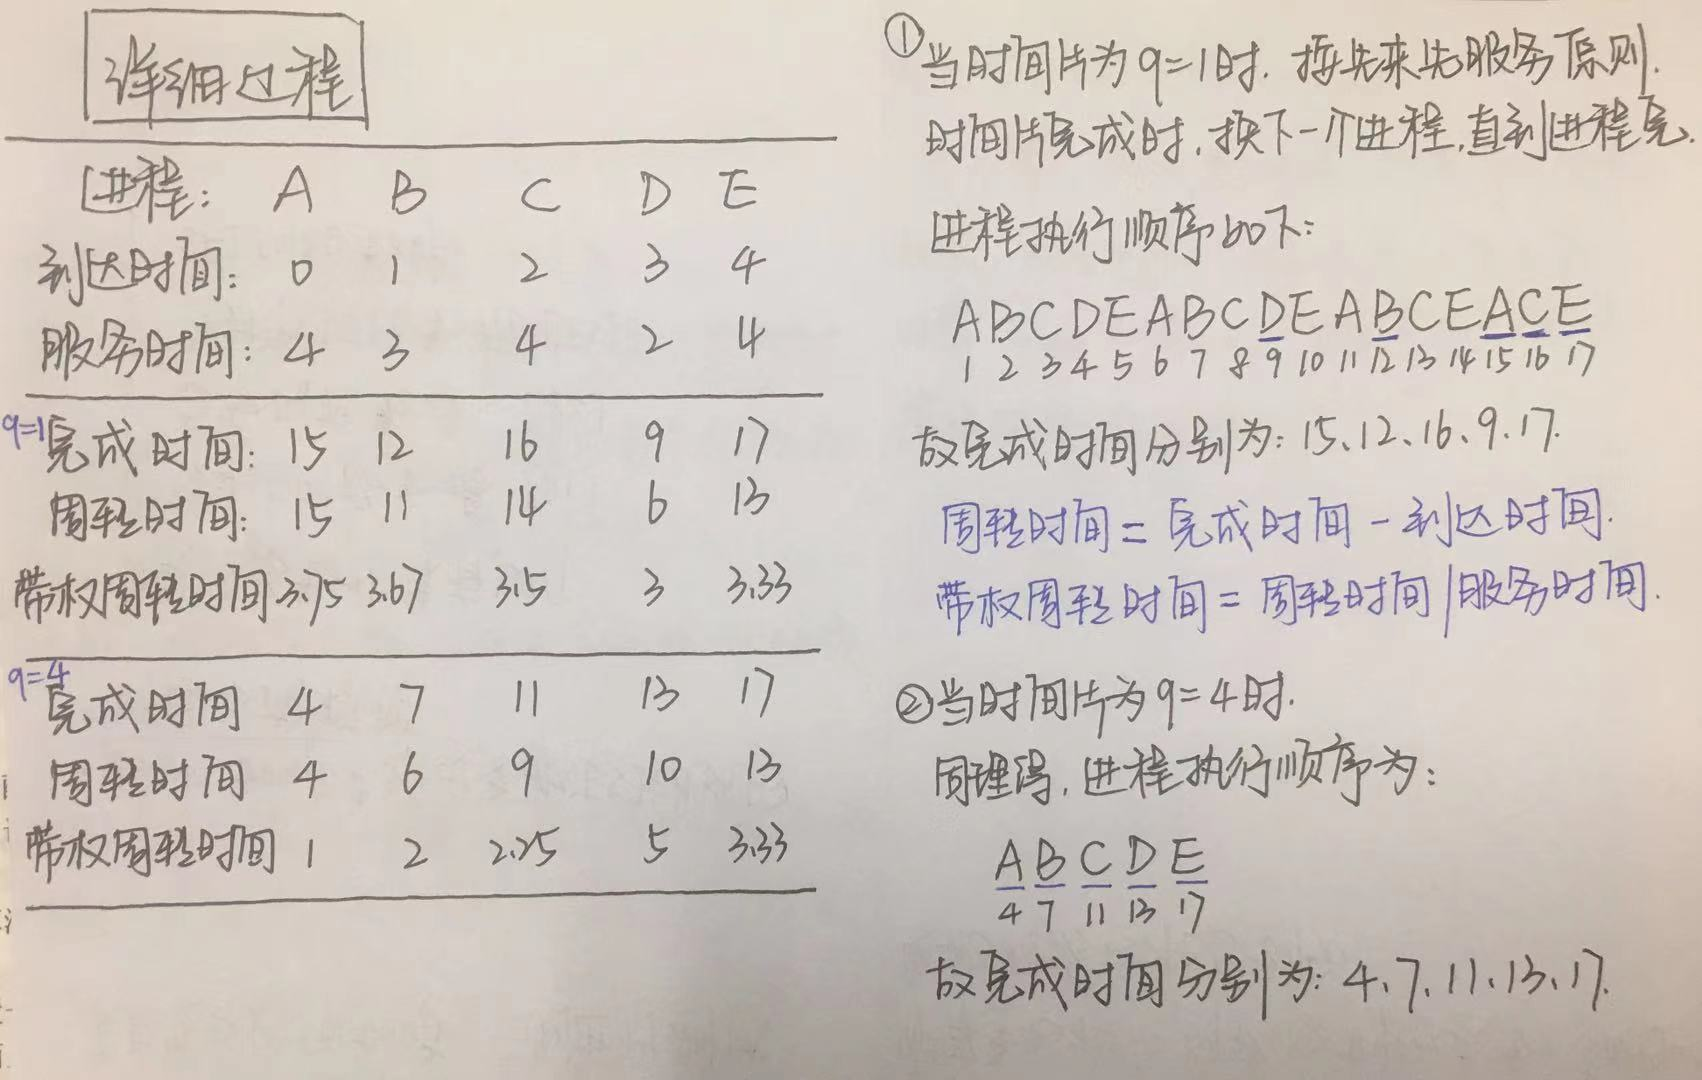 详细过程
进程: A B C D E
到达时间: 0 1 2 3 4
服务时间: 4 3 4 2 4
q=1
完成时间: 15 12 16 9 17
周转时间: 15 11 14 6 13
带权周转时间 3.75 3.67 3.5 3 3.33
q=4
完成时间 4 7 11 13 17
周转时间 4 6 9 10 13
带权周转时间 1 2 2.25 5 3.33
①当时间片为q=1时. 按先来先服务原则.
时间片完成时,换下一个进程,直到进程完.
进程执行顺序如下:
A B C D E A B C D E A B C E A C E
1 2 3 4 5 6 7 8 9 10 11 12 13 14 15 16 17
故完成时间分别为: 15、12、16、9、17.
周转时间 = 完成时间 - 到达时间.
带权周转时间 = 周转时间 | 服务时间.
②当时间片为q=4时.
同理得,进程执行顺序为:
A B C D E
4 7 11 13 17
故完成时间分别为: 4、7、11、13、17.